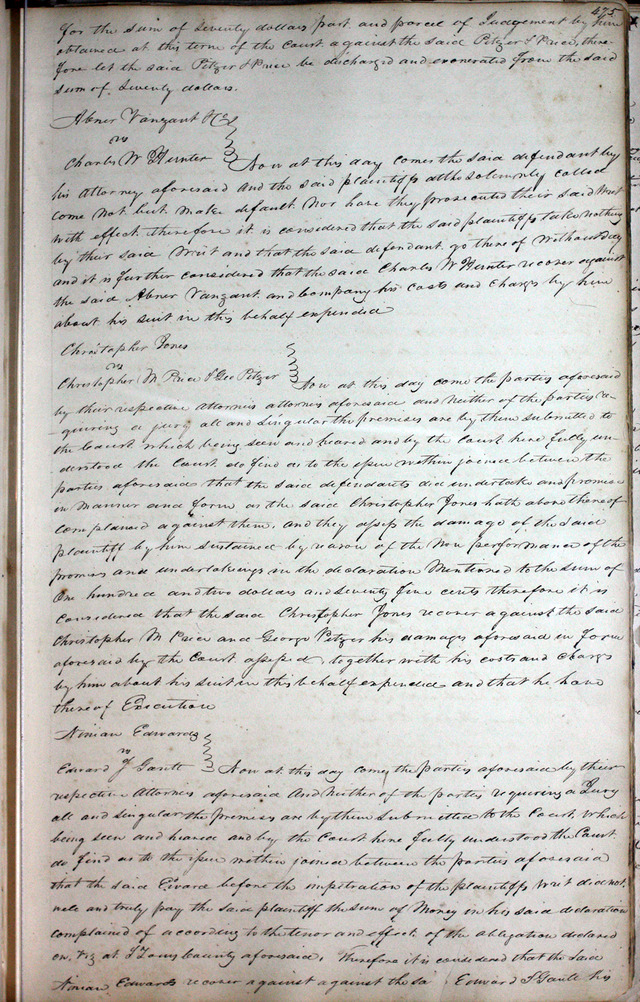 475
for the sum of seventy dollars part and parcel of Judgement by him
obtained at this term of the Court against the said Pitzer & Price, there
fore let the said Pitzer & Price be discharged and exonerated from the said
sum of Seventy dollars.
Abner Vanzant & Co
vs
Charles W Hunter Now at this day comes the said defendant by
his Attorney aforesaid And the said plaintiffs altho solemnly called
come not but make default nor have they prosecuted their said Writ
with effect therefore it is considered that the said plaintiffs take nothing
by their said Writ and that the said defendant go there of without day
and it is further considered that the said Charles W Hunter recover against
the said Abner Vanzant and Company his costs and charges by him
about his suit in this behalf expended
Christopher Jones
vs
Christopher M Price & Geo Pitzer Now at this day come the parties aforesaid
by their respective attornies attornies aforesaid and neither of the parties re-
-quiring a jury all and singular the premises are by them submitted to
the Court which being seen and heared and by the Court here fully un-
derstood the Court do find as to the issue within joined between the
parties aforesaid that the said defendants did undertake and promise
in manner and form as the said Christopher Jones hath above thereof
complained against them, and they assess the damage of the said
plaintiff by him sustained by reason of the Non performance of the
promises and undertakings in the declaration Mentioned to the sum of
One hundred and two dollars and seventy five cents therefore it is
considered that the said Christopher Jones recover against the said
Christopher M Price and George Pitzer his damages aforesaid in form
aforesaid by the Court assessed, together with his costs and charges
by him about his suit in this behalf expended and that he have
thereof Execution
Ninian Edwards
vs
Edward J Gantt Now at this day comes the parties aforesaid by their
respective Attornies aforesaid And Neither of the parties requiring a Jury
all and singular the premises are by them submitted to the Court, which
being seen and heared and by the Court here fully understood the Court
do find as to the issue within joined between the parties aforesaid
that the said Edward before the impetration of the plaintiffs writ did not
well and truly pay the said plaintiff the sum of Money in his said declaration
complained of according to the tenor and effect of the obligation declared
on, viz at St Louis County aforesaid, Therefore it is considered that the said
Ninian Edwards recover against against the sd Edward J Gantt his